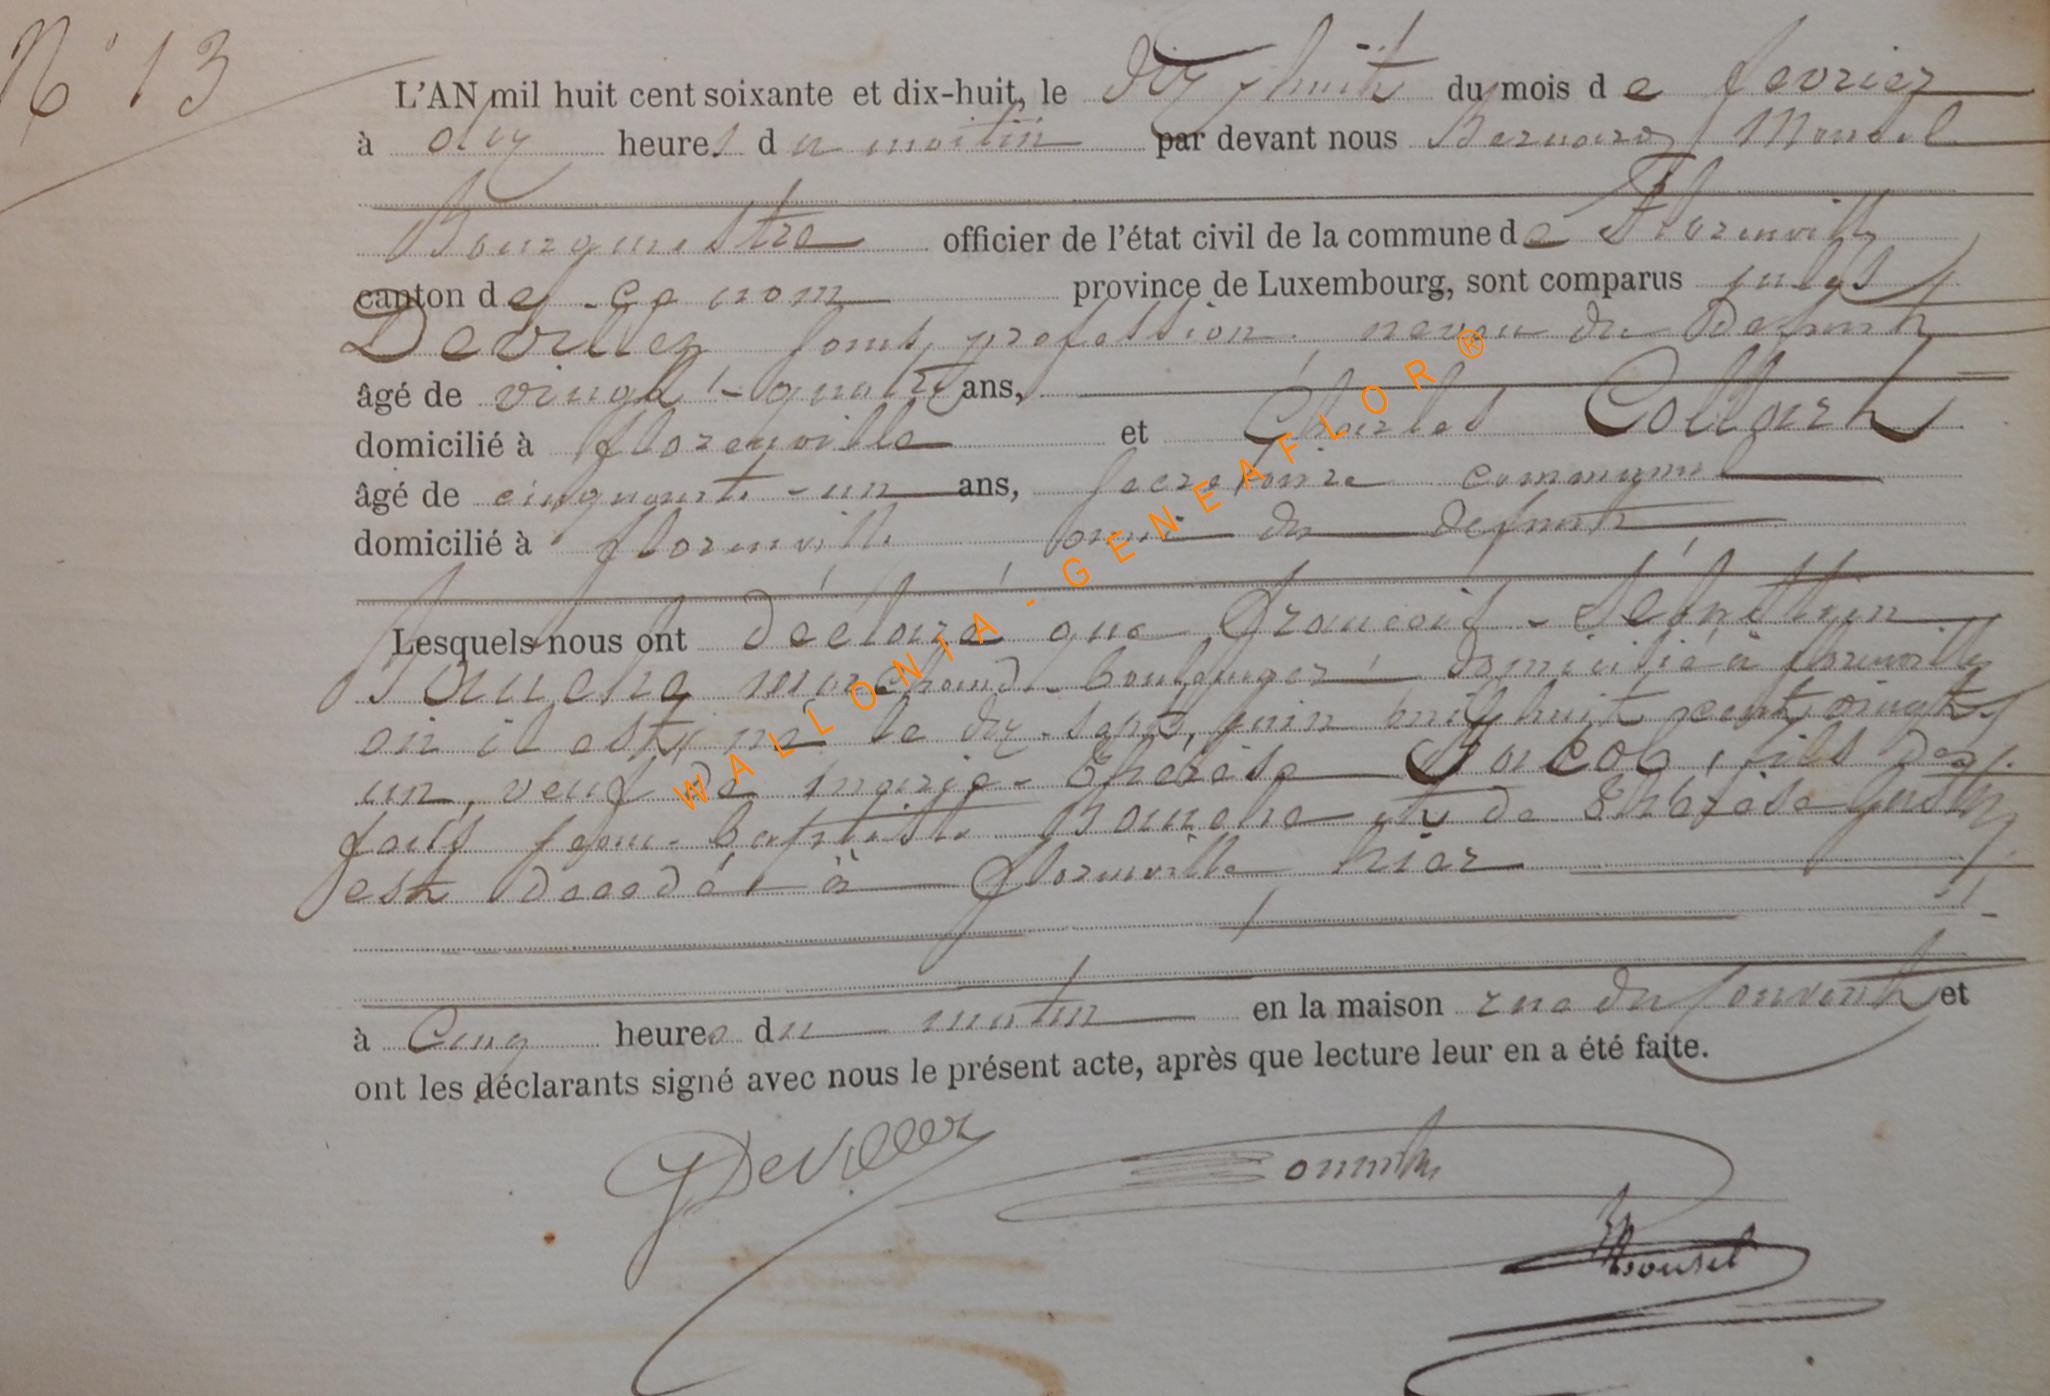 N° 13
L'AN mil huit cent soixante et dix-huit, le dix huit du mois de fevrier
à dix heures du matin par devant nous Bernard Mousel
Bourgmestre officier de l'état civil de la commune de Florenville
canton de ce nom province de Luxembourg, sont comparus jules
Deviller sans profession, neveu du defunt
âgé de vingt-quatre ans,
domicilié à florenville et Charles
âgé de cinquante-un ans, secretaire communal
domicilié à florenville ami du defunt
Lesquels nous ont déclaré que francois-
marchand-boulanger domicilié à florenville
où il est né le dix-sept juin mil huit cent vingt
un, veuf de marie-thérèse Jacob, fils des
jean-baptiste et de thérèse
est decedé à florenville hier
à cinq heures du matin en la maison rue du Couvent et
ont les déclarants signé avec nous le présent acte, après que lecture leur en a été faite.
JDeviller
Mousel
WALLONIA - GENEAFLOR ®